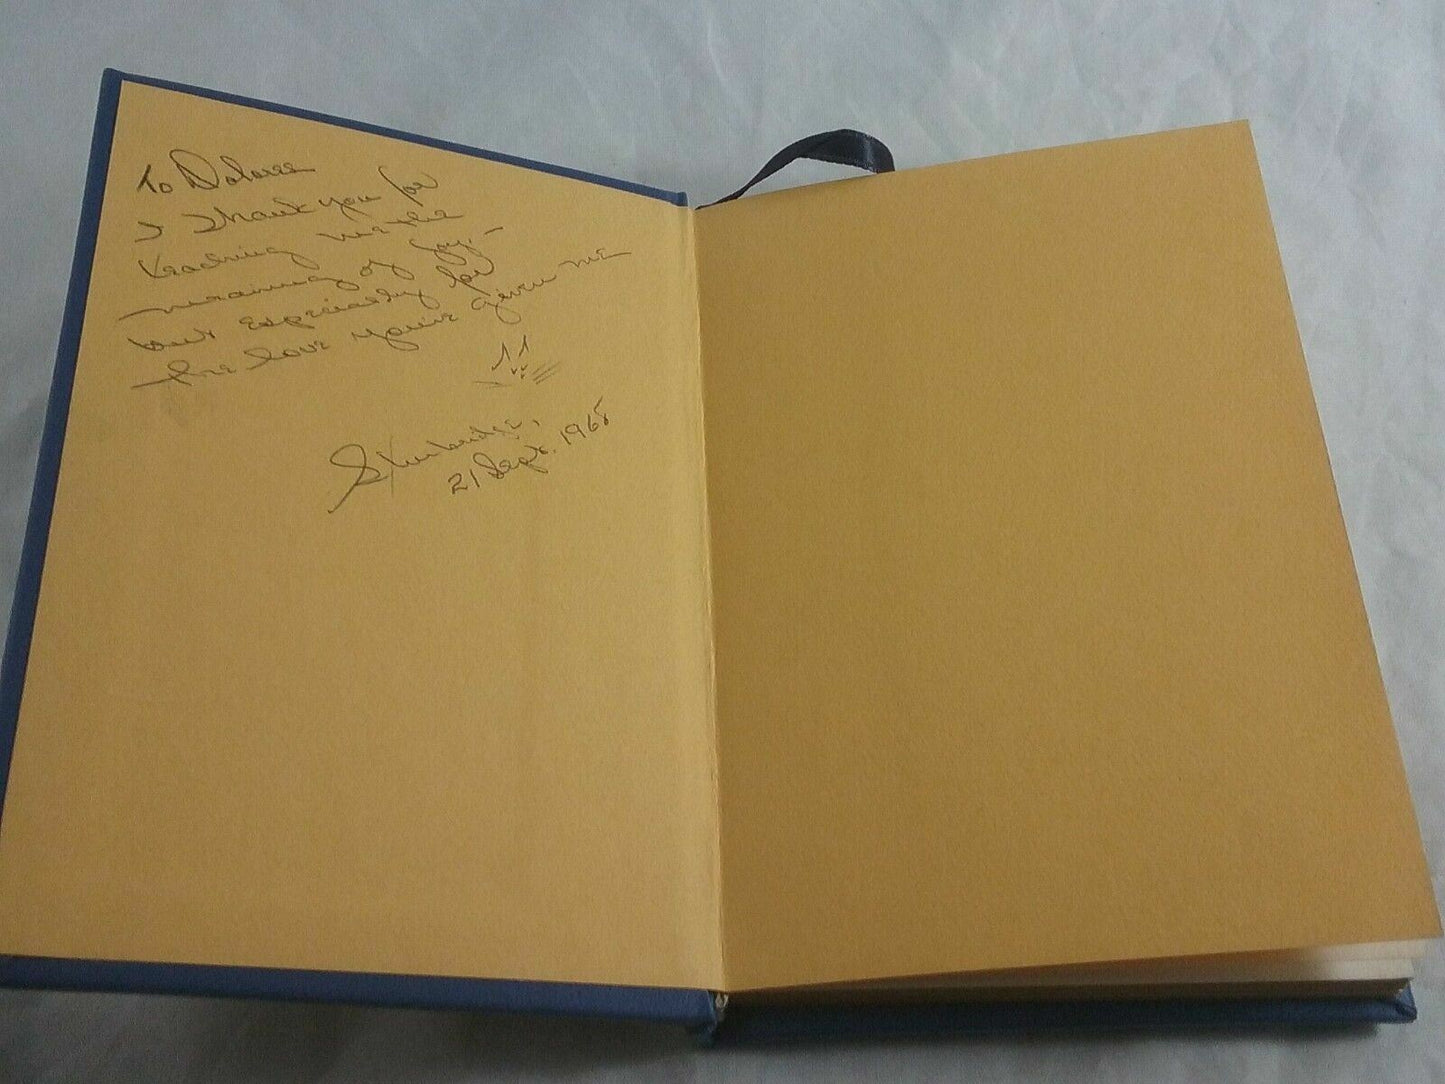 To Dolores
I thank you for
teaching me the
meaning of joy. -
but especially for
the love you've given me
!!
Sturbridge,
21 Sept. 1968